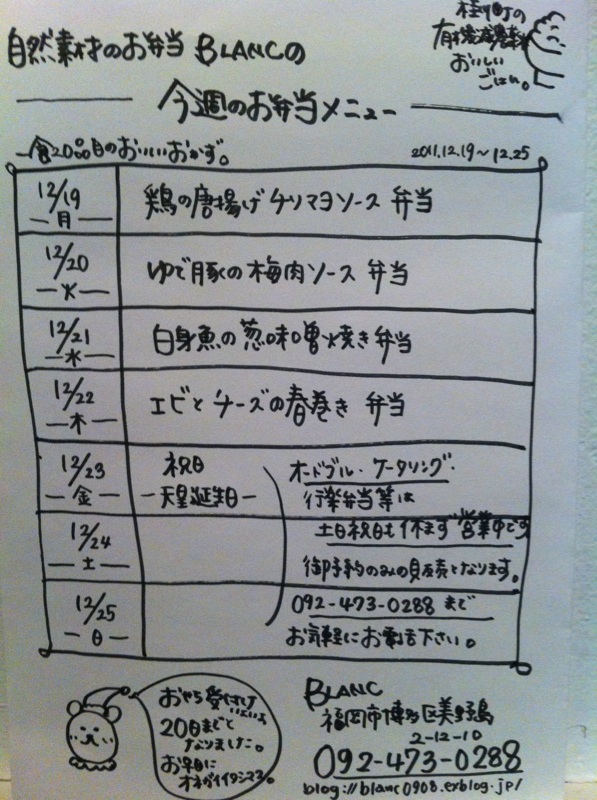 自然素材のお弁当 BLANCの
桂川町の
有機農産物
おいしい
ごはん。
今週のお弁当メニュー
一食20品目のおいしいおかず。
2011.12.19～12.25
12/19
月
鶏の唐揚げチリマヨソース 弁当
12/20
火
ゆで豚の梅肉ソース 弁当
12/21
水
白身魚の葱味噌焼き弁当
12/22
木
エビとチーズの春巻き 弁当
12/23
金
祝日
天皇誕生日
オードブル・ケータリング・
行楽弁当等は
12/24
土
土日祝日も休まず営業中です
御予約のみの販売となります。
12/25
日
092-473-0288 まで
お気軽にお電話下さい。
20日までと
なりました。
お早目に
オネガイイタシマス。
BLANC
福岡市博多区美野島
2-12-10
092-473-0288
blog://blanc0908.exblog.jp/